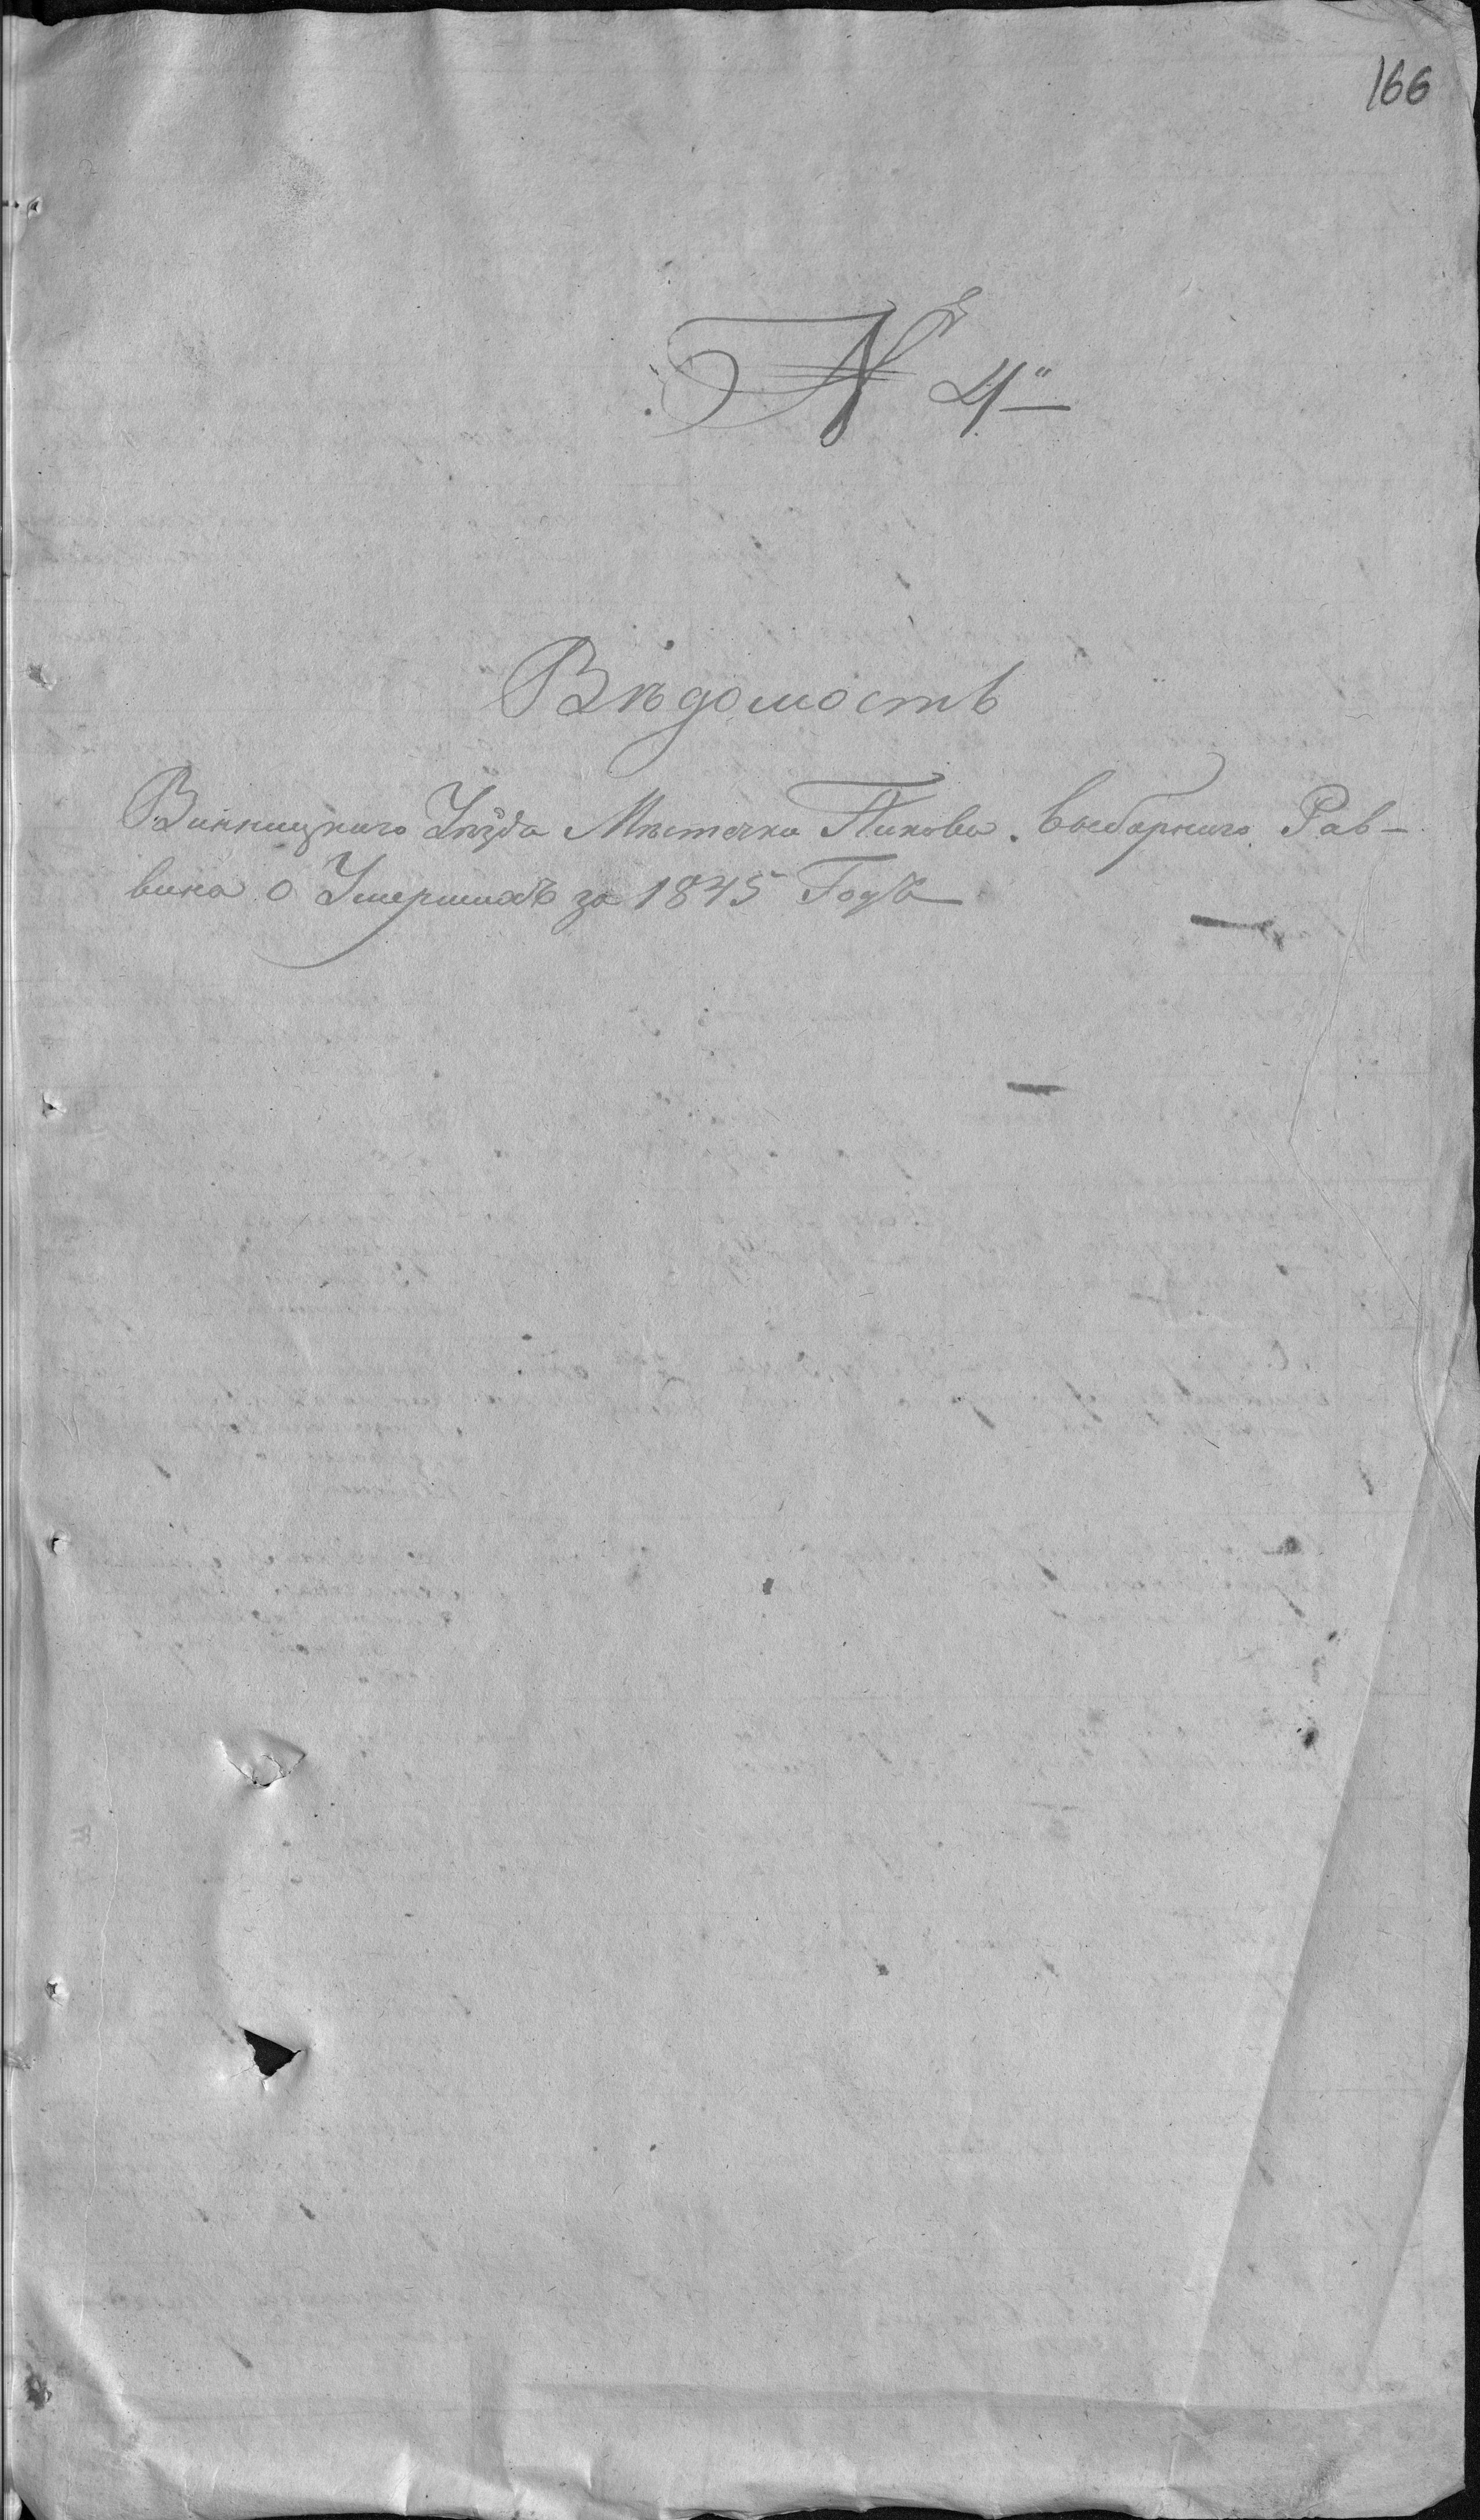 166
№ 4
Вѣдомость
Винницкаго Уѣзда Мѣстечка Пикова выборнаго Рав-
вина о Умершихъ за 1845 Годъ